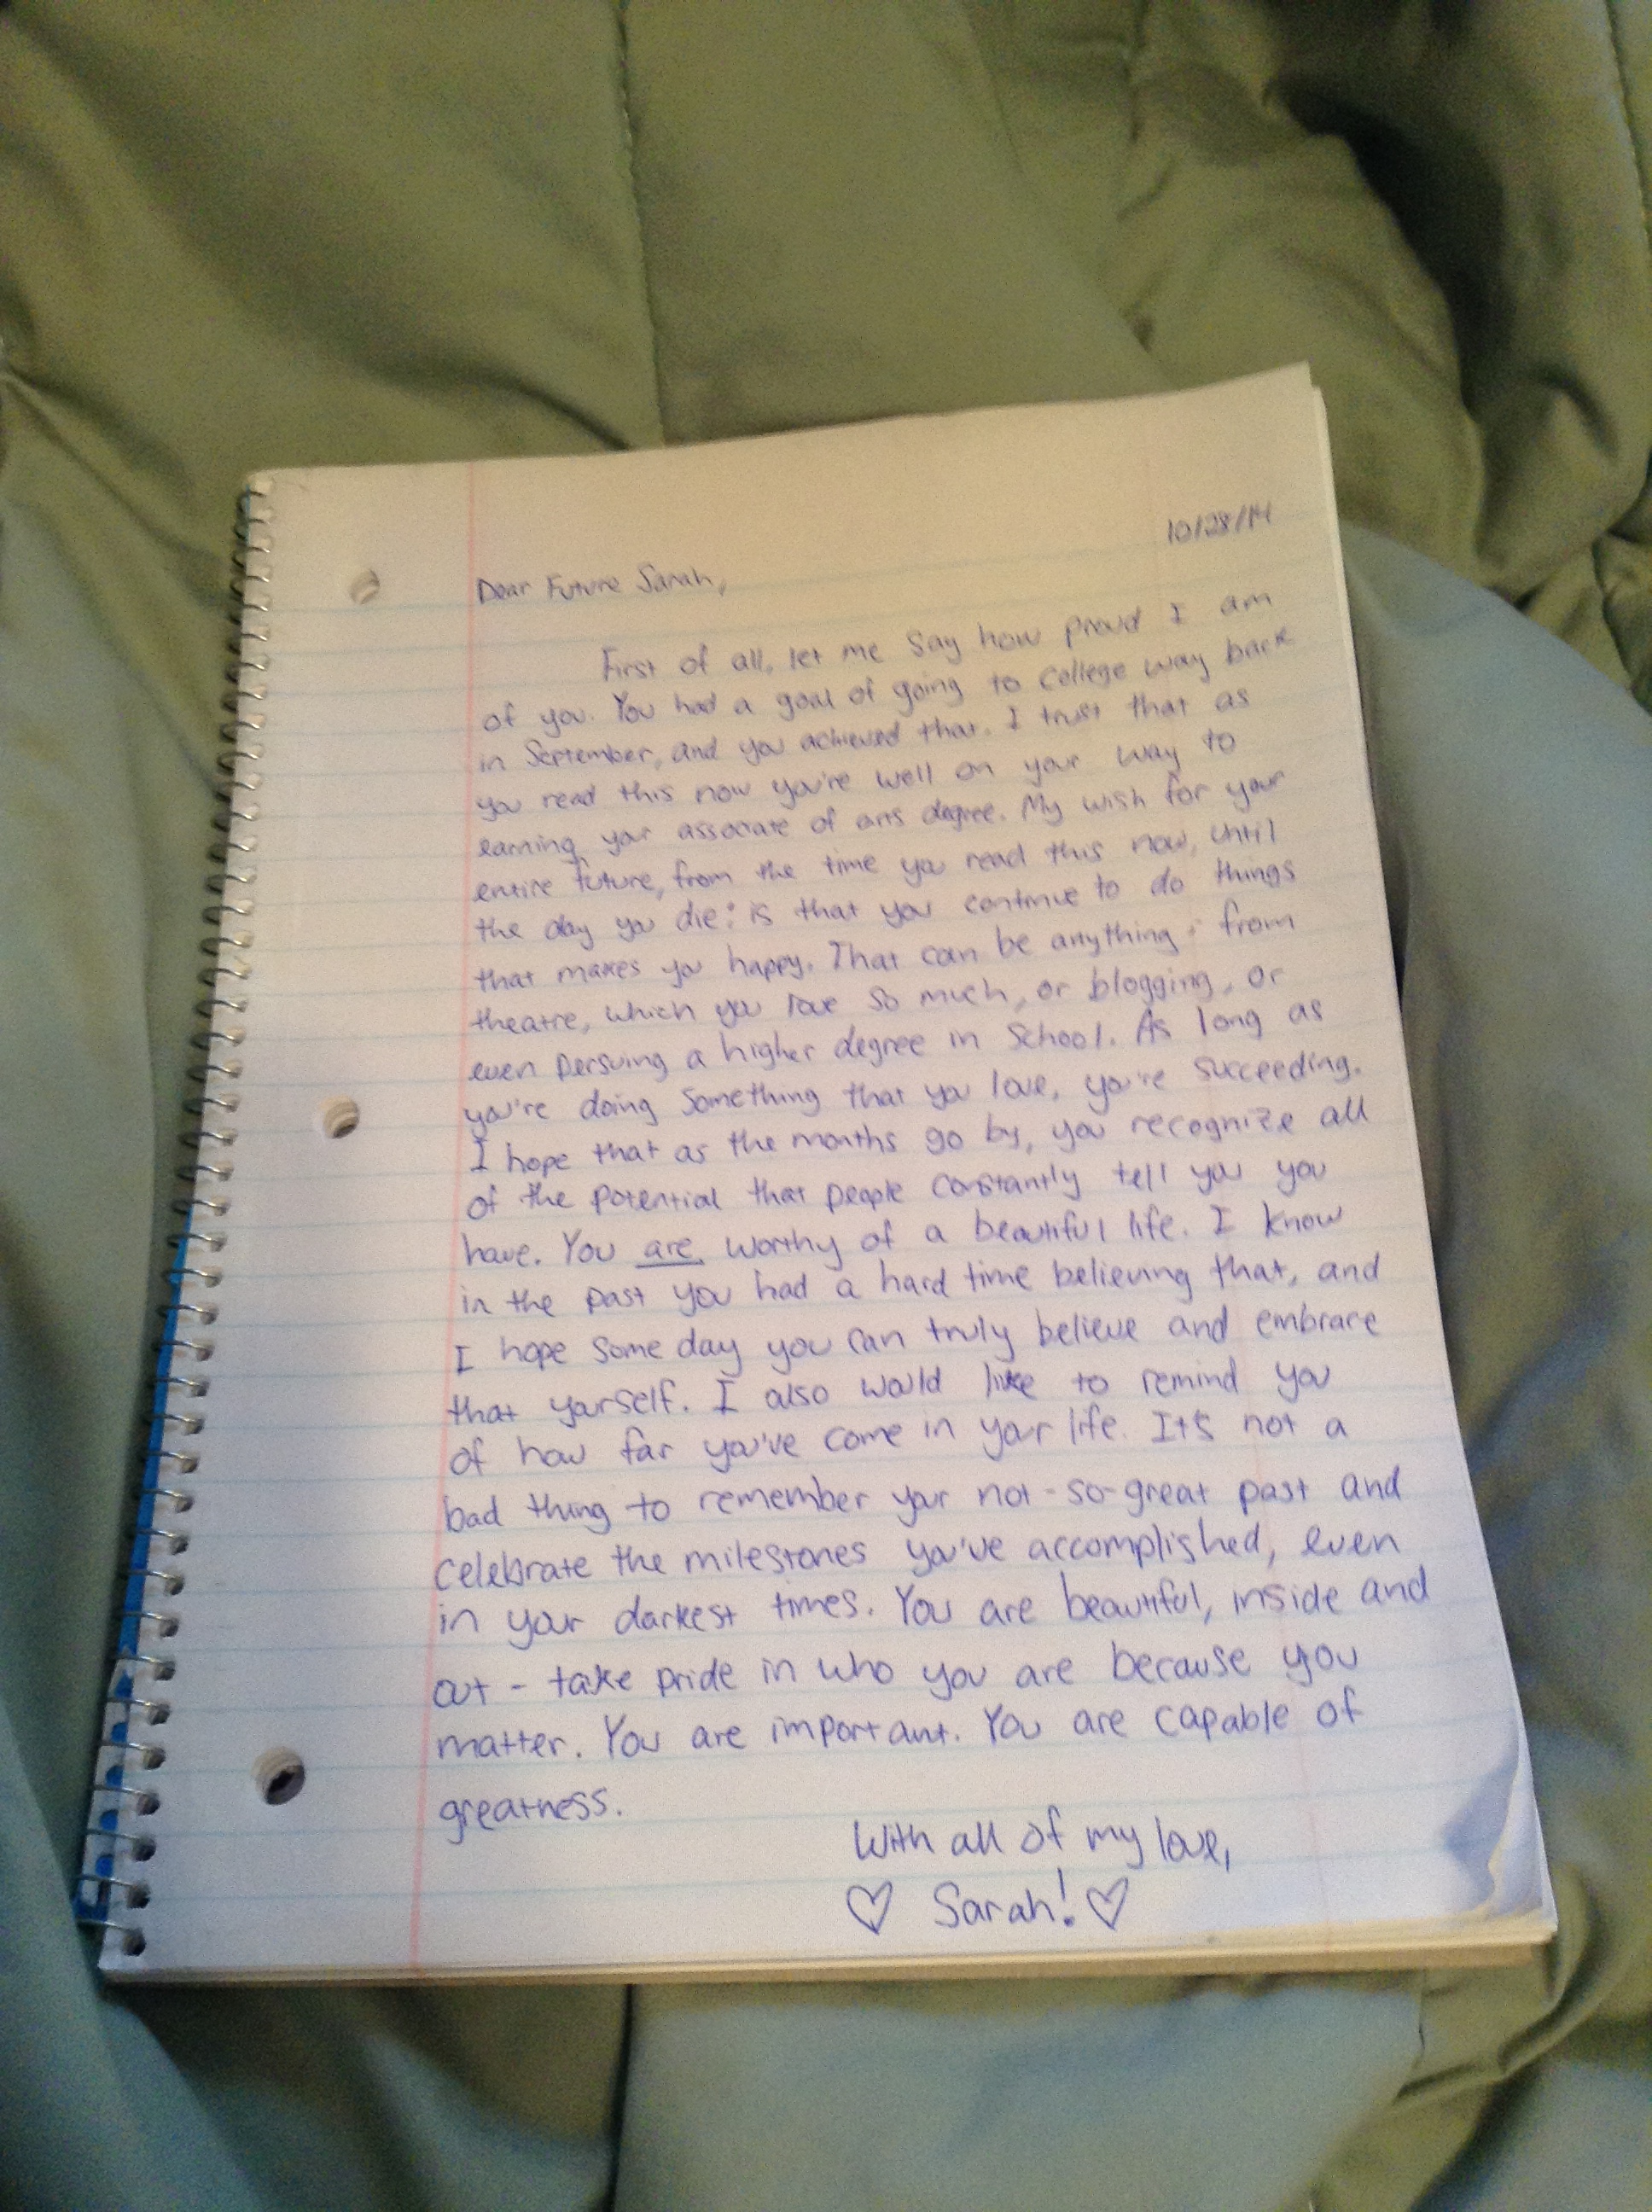 10/28/14
Dear Future Sarah,
First of all, let me say how proud I am
of you. You had a goal of going to college way back
in September, and you achieved that. I trust that as
you read this now you're well on your way to
earning your associate of arts degree. My wish for your
entire future, from the time you read this now, until
the day you die: is that you continue to do things
that makes you happy. That can be anything; from
theatre, which you love so much, or blogging, or
even persuing a higher degree in school. As long as
you're doing something that you love, you're succeeding.
I hope that as the months go by, you recognize all
of the potential that people constantly tell you you
have. You are worthy of a beautiful life. I know
in the past you had a hard time believing that, and
I hope some day you can truly believe and embrace
that yourself. I also would like to remind you
of how far you've come in your life. It's not a
bad thing to remember your not-so-great past and
celebrate the milestones you've accomplished, even
in your darkest times. You are beautiful, inside and
out - take pride in who you are because you
matter. You are important. You are capable of
greatness.
With all of my love,
♡ Sarah! ♡